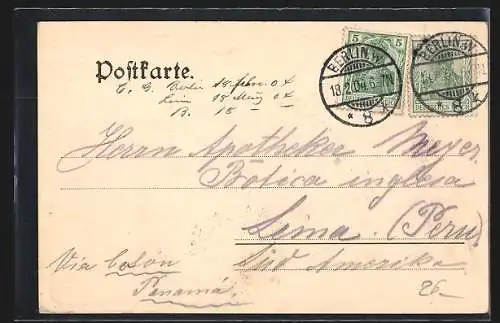 Postkarte.
5
BERLIN.W.
18.2.04. 5-7N.
* 8 k
BERLIN.W.
* 8 k
Berlin 18 Febr 04
Lima 18 März 04
B. 15
Herrn Apotheker Meyer
Botica inglesa
Lima. (Peru)
Süd Amerika
Via Colón
Panamá.
26-